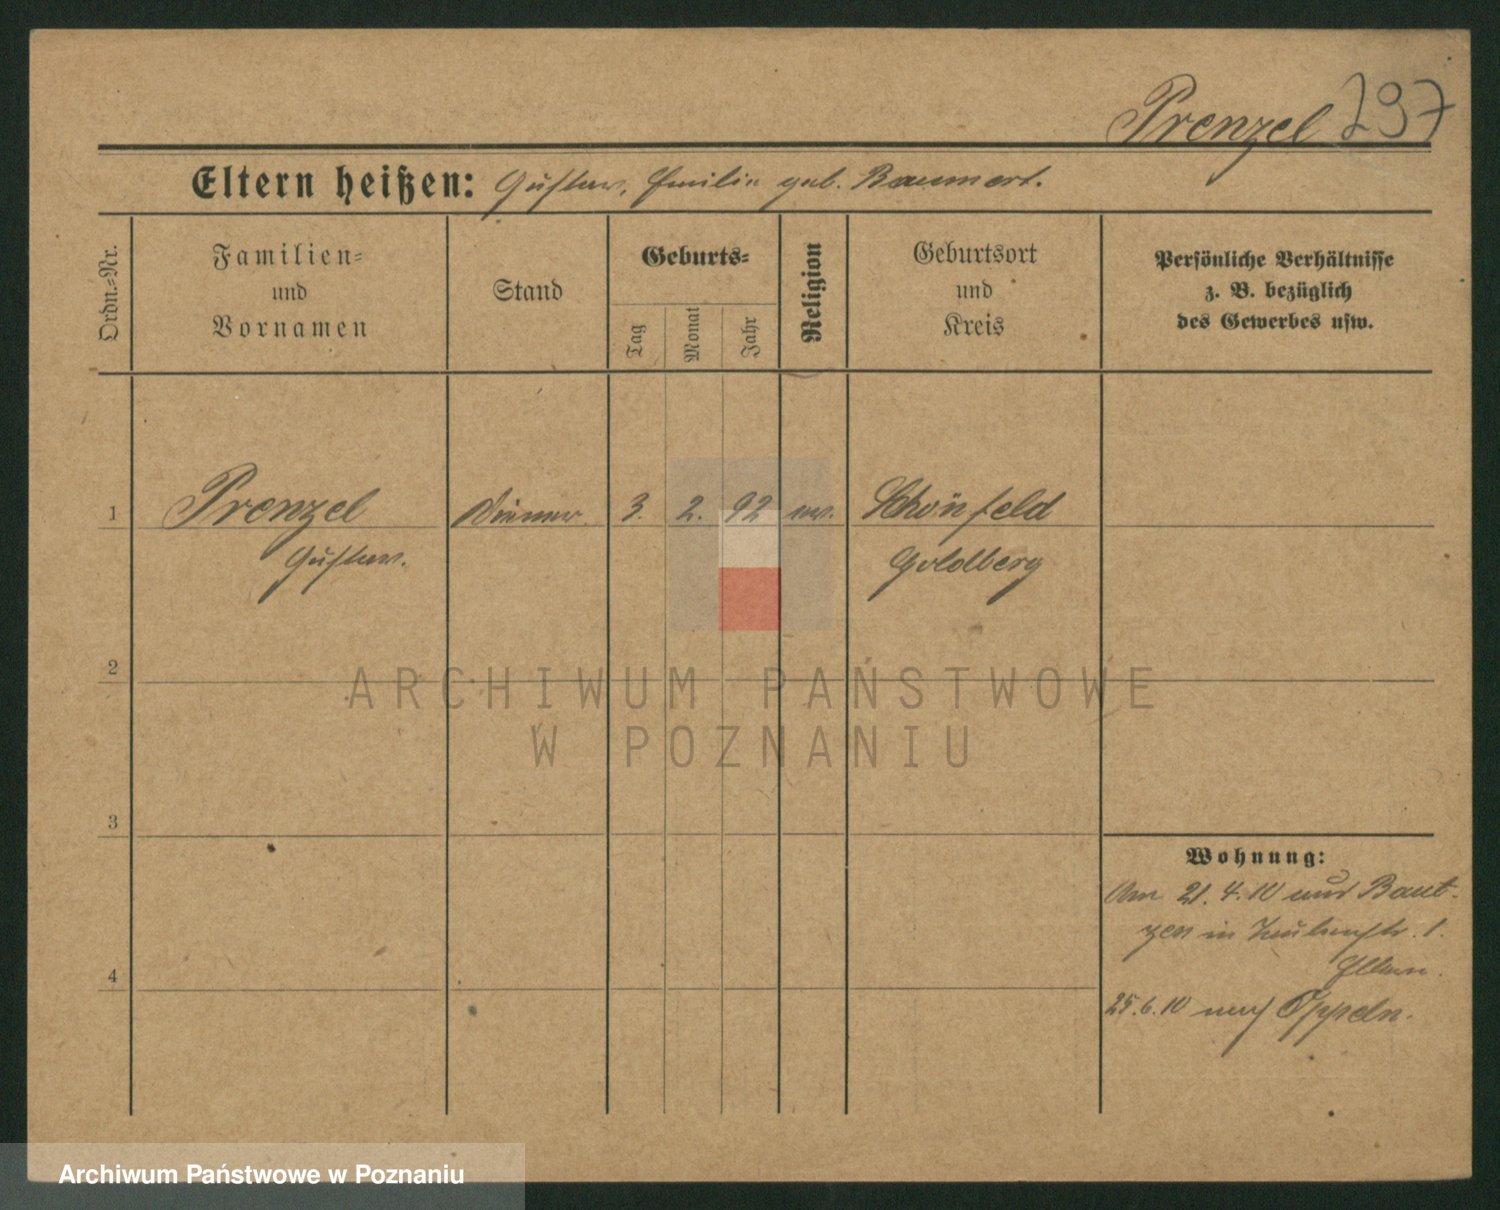 Prenzel 297
Eltern heißen: Gustav, Emilie geb. Baumert.
Ordn.-Nr.
Familien-
und
Vornamen
Stand
Geburts-
Tag
Monat
Jahr
Religion
Geburtsort
und
Kreis
Persönliche Verhältnisse
z. B. bezüglich
des Gewerbes usw.
1 Prenzel Diener. 3. 2. 92 ev. Schönfeld
Gustav. Goldberg
2
ARCHIWUM PAŃSTWOWE
W POZNANIU
3
Wohnung:
Am 21. 4. 10 aus Baut-
zen in 1.
Eltern.
4
25. 6. 10 nach Oppeln.
Archiwum Państwowe w Poznaniu